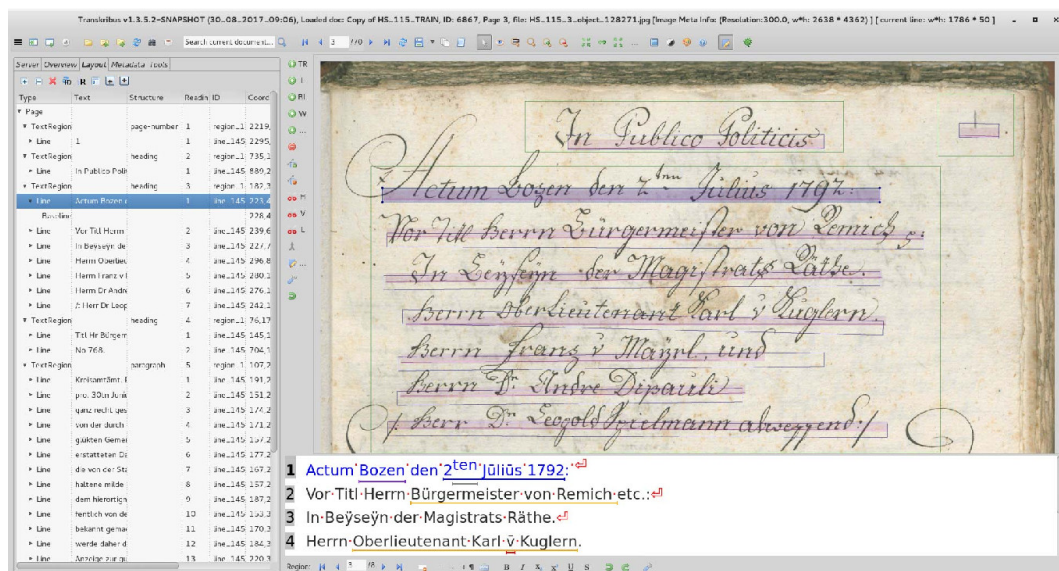 Transkribus v1.3.5.2-SNAPSHOT (30_08_2017_09:06), Loaded doc: Copy of HS_115_TRAIN, ID: 6867, Page 3, file: HS_115_3_object_128271.jpg [Image Meta Info: (Resolution:300.0, w*h: 2638 * 4362) ] [ current line: w*h: 1786 * 50 ]
Search current document... 3 /70
Server Overview Layout Metadata Tools
Type Text Structure Readin ID Coord
Page
TextRegion page-number 1 region_1 2219,
Line 1 1 line_145 2295,
TextRegion heading 2 region_1 735,1
Line In Publico Poli 1 line_145 889,2
TextRegion heading 3 region_1 182,3
Line Actum Bozen 1 line_145 223,4
Baseline 228,4
Line Vor Titl Herrn 2 line_145 239,6
Line In Beÿseÿn de 3 line_145 227,7
Line Herrn Oberlieu 4 line_145 296,8
Line Herrn Franz v 5 line_145 280,1
Line Herrn Dr Andre 6 line_145 276,1
Line /: Herr Dr Leop 7 line_145 242,1
TextRegion heading 4 region_1 76,17
Line Titl Hr Bürgerm 1 line_145 145,1
Line No 768. 2 line_145 704,1
TextRegion paragraph 5 region_1 107,2
Line Kreisamtämt. 1 line_145 191,2
Line pro. 30tn Juni 2 line_145 151,2
Line ganz recht ges 3 line_145 174,2
Line von der durch 4 line_145 171,2
Line glükten Gemei 5 line_145 157,2
Line erstatteten Da 6 line_145 177,2
Line die von der Sta 7 line_145 167,2
Line haltene milde 8 line_145 157,2
Line dem hierortign 9 line_145 187,2
Line fentlich von de 10 line_145 153,3
Line bekannt gema 11 line_145 170,3
Line werde daher d 12 line_145 184,3
Line Anzeige zur gu 13 line_145 220,3
TR
Bl
W
H
V
L
In Publico Politicis
1.
Actum Bozen den 2ten Julius 1792:
Vor Titl Herrn Bürgermeister von Remich
In Beÿseÿn der Magistrats Räthe.
Herrn Oberlieutenant Karl v̄ Kuglern.
Herrn Franz v̄ Maÿrl, und
Herrn Dr. Andre Dipauli
/: Herr Dr. Leopold Spielmann abwesend :/
1 Actum Bozen den 2ten Jūliūs 1792:
2 Vor Titl Herrn Bürgermeister von Remich etc.:
3 In Beÿseÿn der Magistrats Räthe.
4 Herrn Oberlieutenant Karl v̄ Kuglern.
Region: 3 /8 B I X₁ X¹ U S